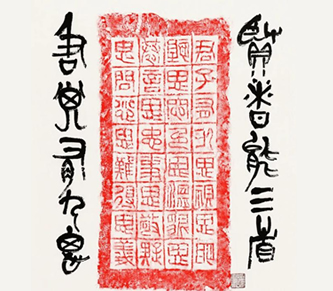 賢者能三省
君子有九思視思明
聽思聰色思溫貌思
恭言思忠事思敬疑
思問忿思難得思義
有九思